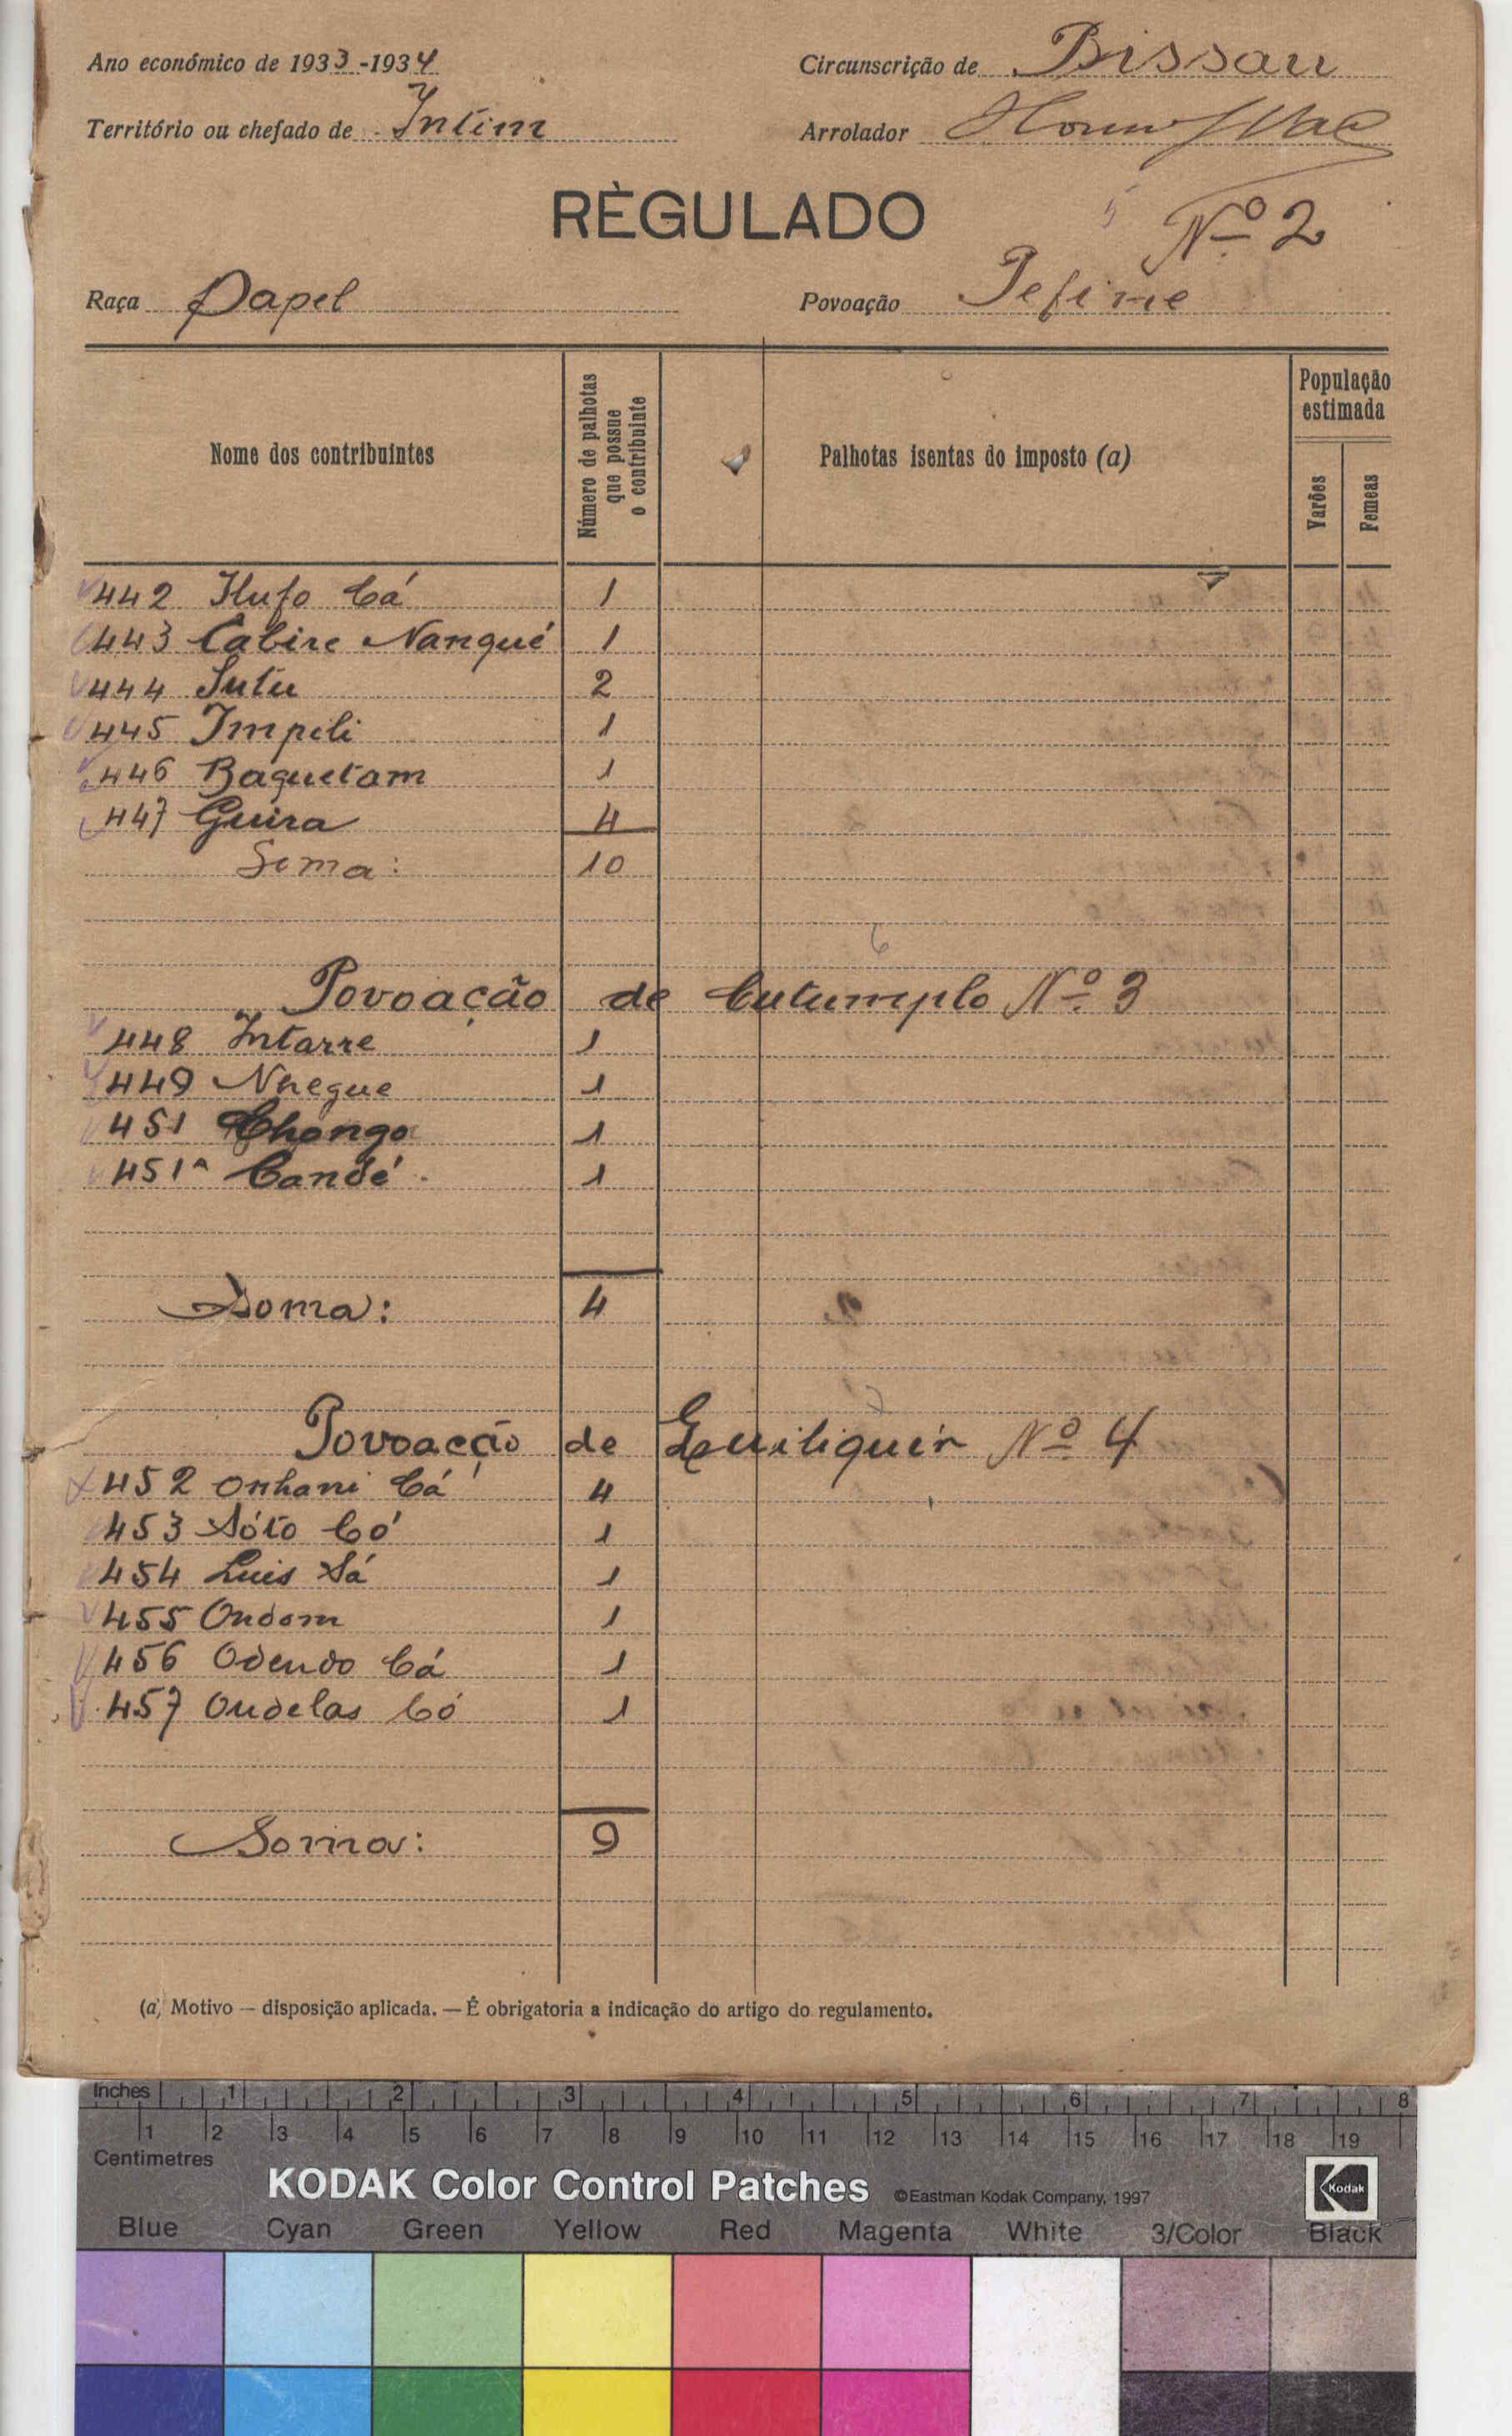 Ano económico de 1933-1934 Circunscrição de Bissau
Território ou chefado de Intim Arrolador
RÈGULADO
Nº 2
Raça Papel Povoação Pefine
Nome dos contribuintes
Número de palhotas que possue o contribuinte
Palhotas isentas do imposto (a)
População estimada
Varões
Femeas
442 Ilufo Cá 1
443 Cabire Nanqué 1
444 Sutu 2
445 Impili 1
446 Baquetam 1
447 Guira 4
Soma: 10
6
Povoação de Cutumplo Nº 3
448 Intarre 1
449 Nhegue 1
451 Chongo 1
451ᴬ Candé 1
Soma: 4
7
Povoação de Nº 4
452 Onhani Cá 4
453 Sóto Có 1
454 Luis Sá 1
455 Ondom 1
456 Odendo Cá 1
457 Ondelas Có 1
Soma: 9
(a) Motivo — disposição aplicada. — É obrigatoria a indicação do artigo do regulamento.
Inches 1 2 3 4 5 6 7 8
1 2 3 4 5 6 7 8 9 10 11 12 13 14 15 16 17 18 19
Centimetres
KODAK Color Control Patches ©Eastman Kodak Company, 1997 Kodak
Blue Cyan Green Yellow Red Magenta White 3/Color Black